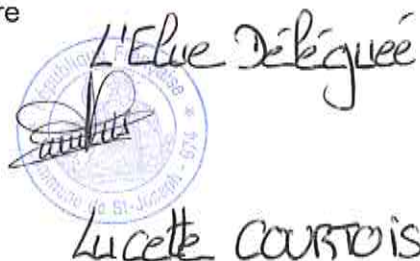 re
L'Elue Déléguée
République Française
Commune de St-Joseph - 974 *
Lucette COURTOIS